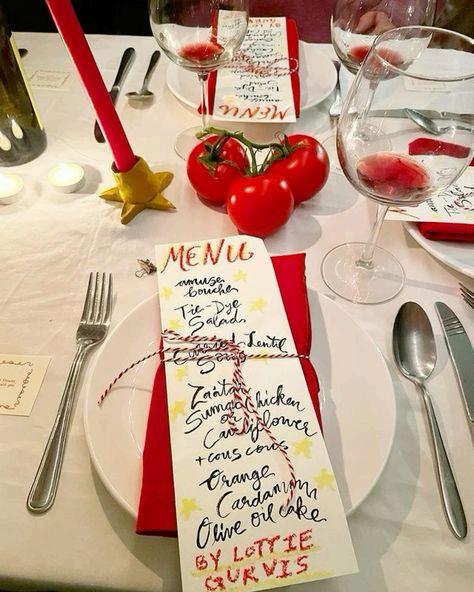 MENU
amuse
bouche
Tie-Dye
Salad
Lentil
Soup
Za'atar
Sumac chicken
or
Cauliflower
+ cous cous
Orange
Cardamom
Olive oil cake
BY LOTTIE
GURVIS
MENU
amuse
bouche
Tie-Dye
Salad